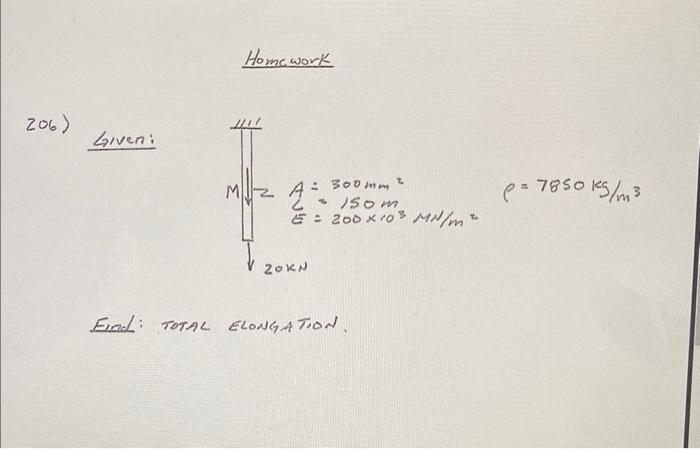 Homework
206)
Given:
M
A = 300 mm²
L = 150 m
E = 200 x 10³ MN/m²
ρ = 7850 kg/m³
20 KN
Find: TOTAL ELONGATION.